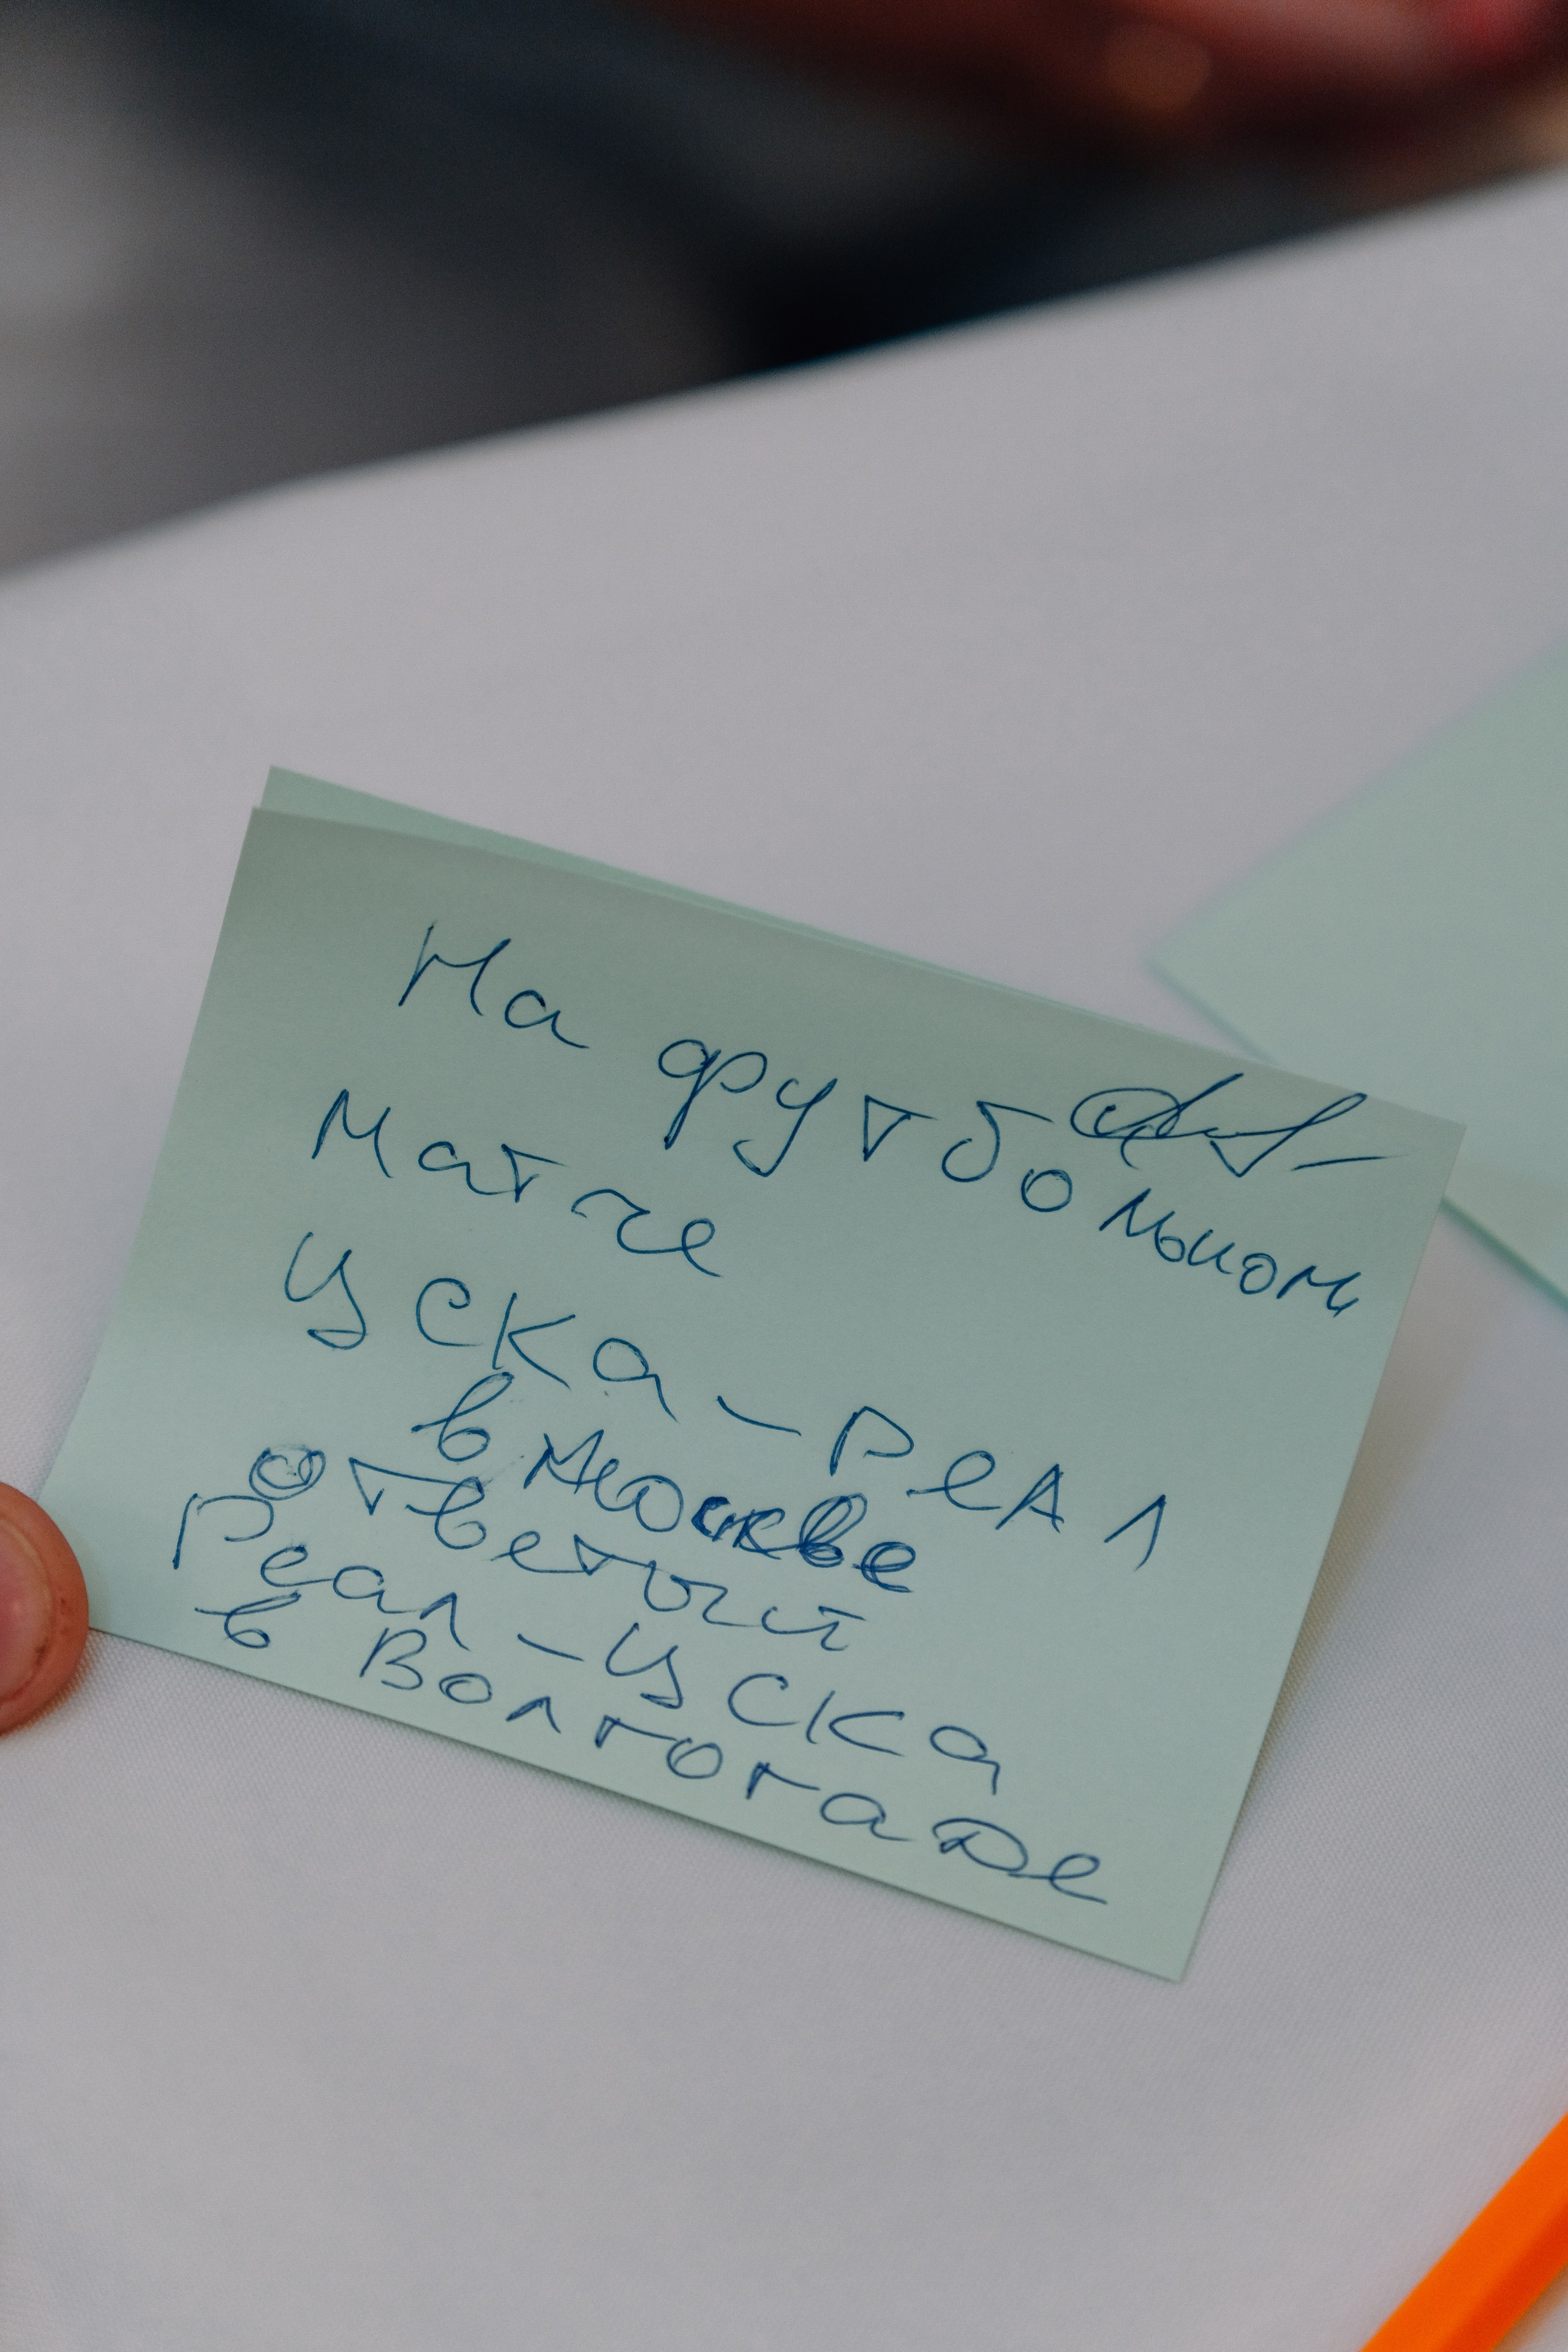 На футбольном
матче
ЦСКа-РеАл
в Москве
ответный
Реал-ЦСКа
в Волгогаде